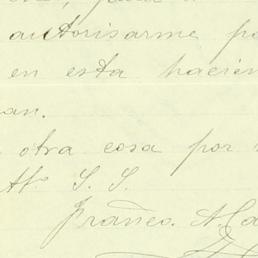 autorisarme po
en esta hacien
an.
otra cosa por
Atto. S. S.
Franco. Ma